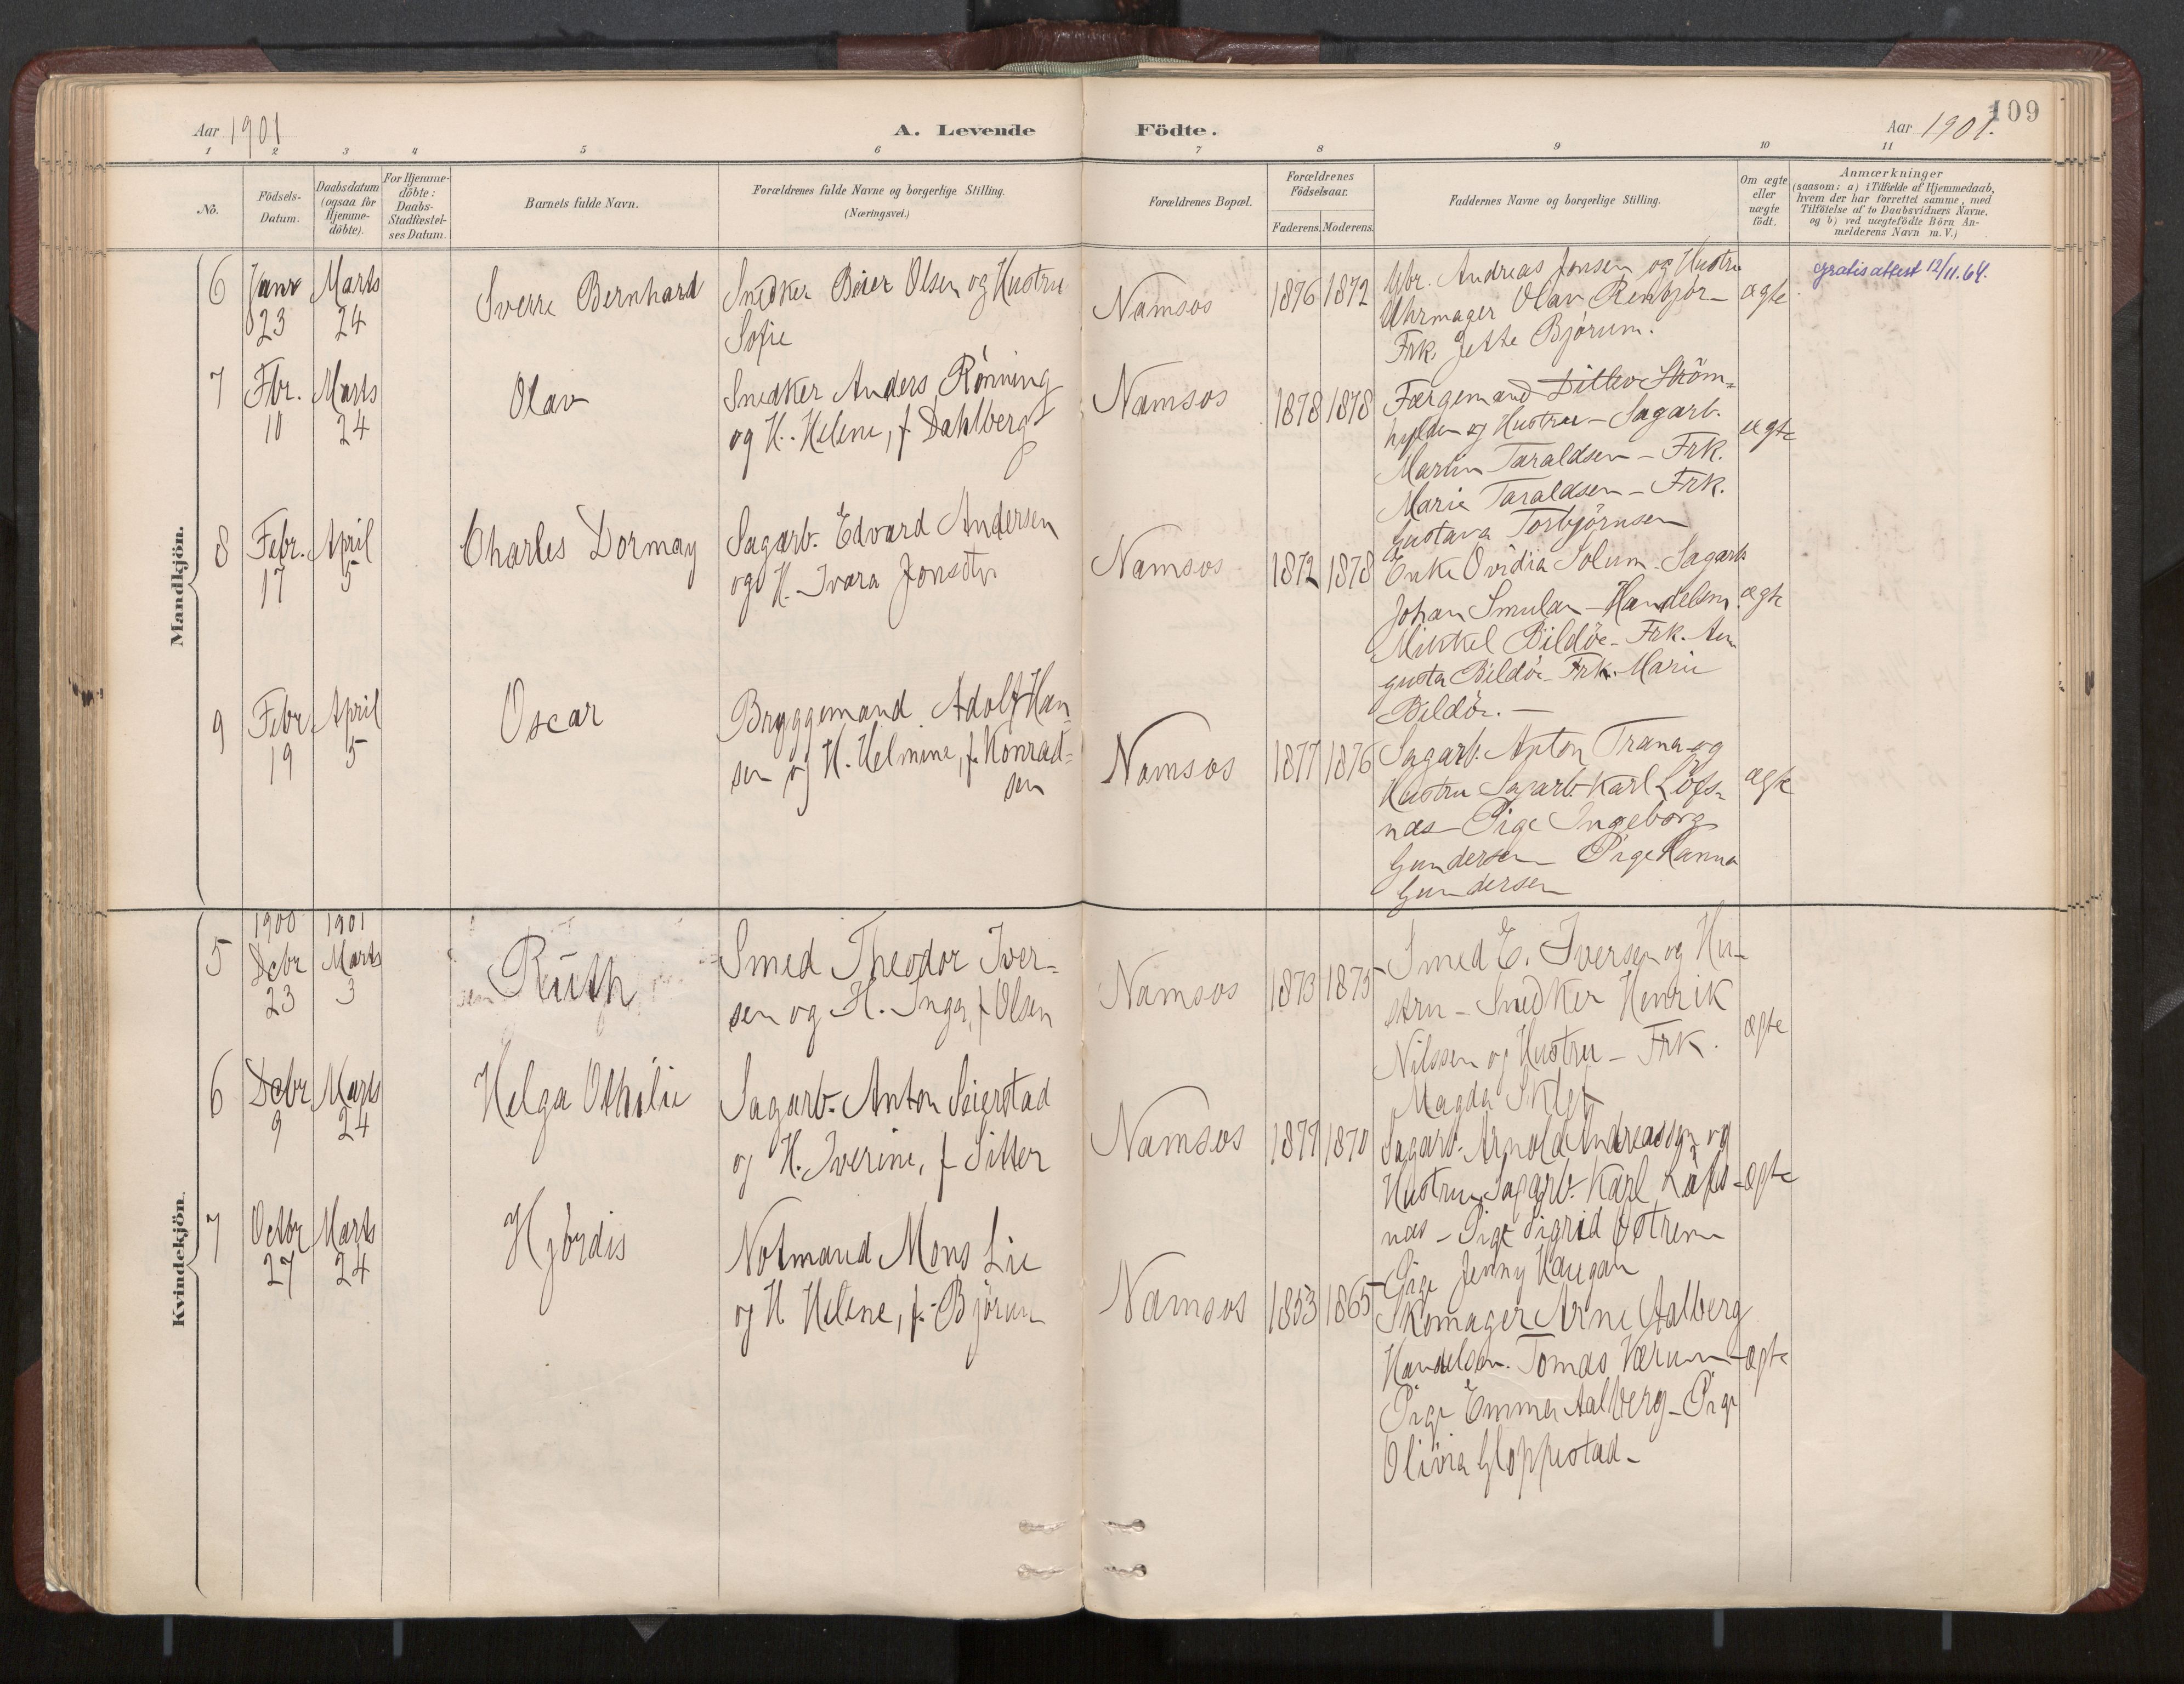 109
Aar 1901
A. Levende Födte.
Aar 1901.
1 2 3 4 5 6 7 8 9 10 11
No.
Födsels-
Datum.
Daabsdatum
(ogsaa for
Hjemme-
döbte).
For Hjemme-
döbte:
Daabs-
Stadfæstel-
ses Datum.
Barnets fulde Navn.
Forældrenes fulde Navne og borgerlige Stilling.
(Næringsvei.)
Forældrenes Bopæl.
Forældrenes
Födselsaar.
Faderens. Moderens.
Faddernes Navne og borgerlige Stilling.
Om ægte
eller
uægte
födt.
Anmærkninger
(saasom: a) i Tilfælde af Hjemmedaab,
hvem der har forrettet samme, med
Tilföielse af to Daabsvidners Navne.
og b) ved uægtefödte Börn An-
melderens Navn m. V.)
Mandkjön.
6
Janr
23
Marts
24
Sverre Bernhard
Snedker Beier Olsen og Hustru
Sofie
Namsos
1876 1872
Andreas Jonsen og Hustru
Uhrmager Olav
Frk. Jette Bjørum.
ægte
gratis attest 12/11.64.
7
Fbr.
10
Marts
24
Olav
Snedker Anders Rønning
og H. Helene, f. Dahlberg
Namsos
1878 1878
Færgemand Ditlev Ström=
hylden og Hustru - Sagarb.
Martin Taraldsen - Frk.
Marie Taraldsen - Frk.
Gustava Torbjörnsen
ægte
8
Febr.
17
April
5
Charles Dormay
Sagarb. Edvard Andersen
og H. Ivara Jonsdtr
Namsos
1872 1878
Enke Ovidia Solum - Sagarb
Johan Smulan - Handelsm.
Mikkel Bildöe - Frk. Au
gusta Bildöe - Frk. Marie
Bildöe. -
ægte
9
Febr
19
April
5
Oscar
Bryggemand Adolf Han
sen og H. Helmine, f. Konrad=
sen
Namsos
1877 1876
Sagarb. Anton Trana og
Hustru Sagarb. Karl Löfs=
næs - Pige Ingeborg
Gundersen Pige Hanna
Gundersen
ægte
Kvindekjön.
5
1900
Debr
23
1901
Marts
3
Ruth
Smed Theodor Iver=
sen og H. Inga, f Olsen
Namsos
1873 1875
Smed E. Iversen og Hu-
stru - Snedker Henrik
Nilssen og Hustru - Frk.
Magda
ægte
6
Debr
9
Marts
24
Helga Othilie
Sagarb. Anton Seierstad
og H. Iverine, f Sitter
Namsos
1877 1870
Sagarb. Arnold Andreassen og
Hustru Sagarb. Karl Löfs-
næs - Pige Sigrid Östrem
Pige Jenny Haugan
ægte
7
Octbr
27
Marts
24
Hjördis
Notmand Mons Lie
og H Helene, f. Bjørum
Namsos
1853 1865
Skomager Arne Aalberg
Handelsm. Tomas Værum
Pige Emma Aalberg - Pige
Olivia Gloppestad -
ægte